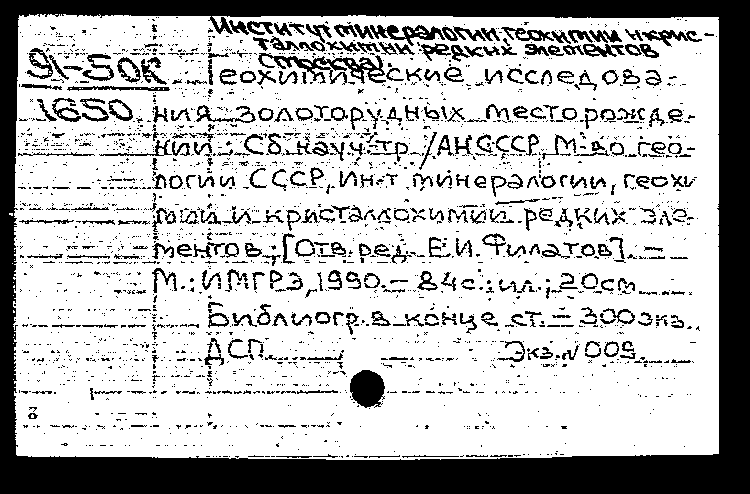 Институт минералогии, геохимии и крис-
таллохимии редких элементов
(Москва)
91-50К Геохимические исследова-
1650 ния золоторудных месторожде-
ний : Сб. науч. тр. / АН СССР, М-во гео-
логии СССР, Ин-т минералогии, геохи
мии и кристаллохимии редких эле-
ментов ; [Отв. ред. Е.И. Филатов]. —
М. : ИМГРЭ, 1990. — 84 с. : ил. ; 20 см
Библиогр. в конце ст. — 300 экз.
ДСП Экз. N 009.